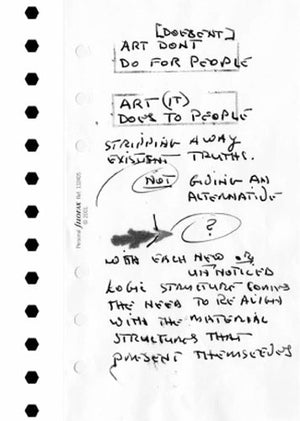 [DOESENT]
ART DONT
DO FOR PEOPLE
ART (IT)
DOES TO PEOPLE
STRIPPING AWAY
EXISTENT TRUTHS.
NOT GIVING AN
ALTERNATIVE
?
WITH EACH NEW OR
UNNOTICED
LOGIC STRUCTURE COMES
THE NEED TO REALIGN
WITH THE MATERIAL
STRUCTURES THAT
PRESENT THEMSELVES
Personal FILOFAX Ref.
© 2001